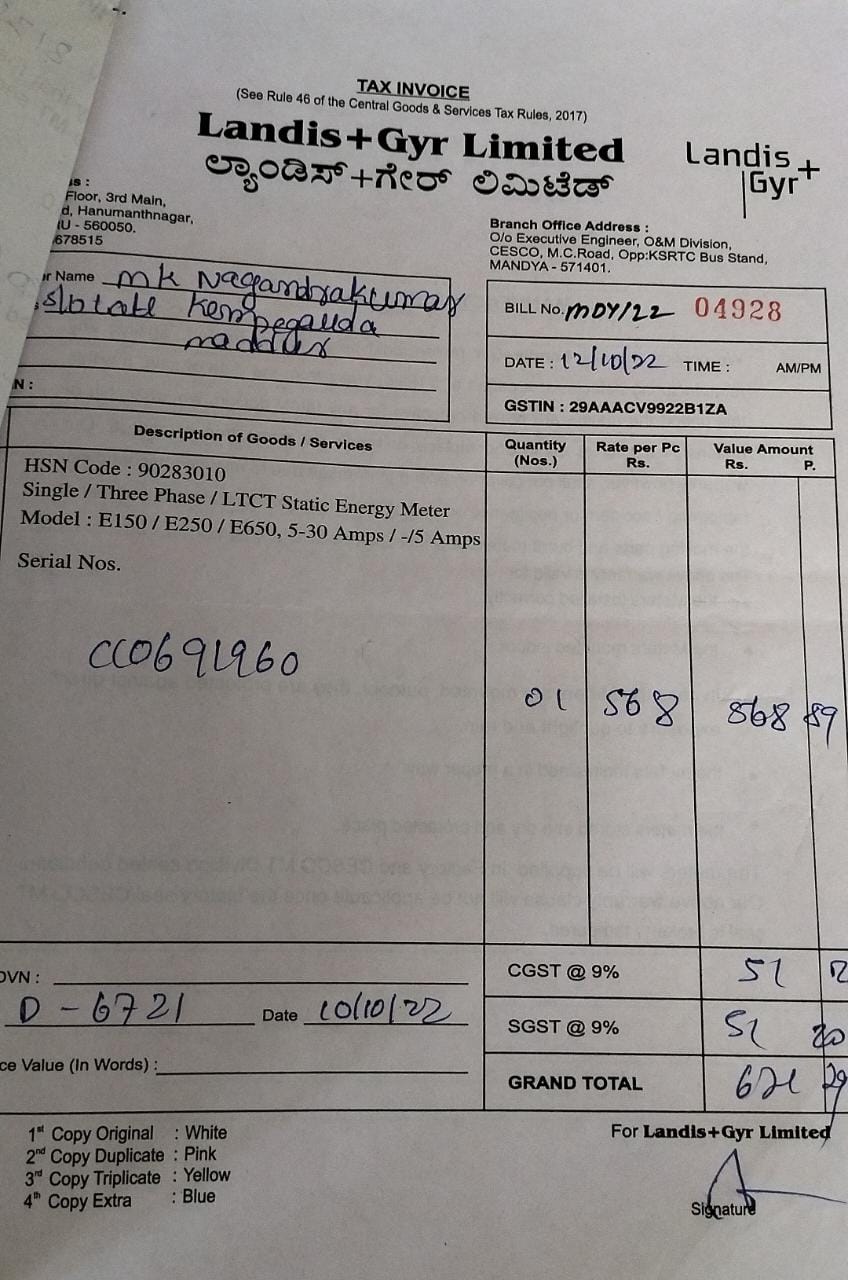 TAX INVOICE
(See Rule 46 of the Central Goods & Services Tax Rules, 2017)
Landis+Gyr Limited
ಲ್ಯಾಂಡಿಸ್+ಗೇರ್ ಲಿಮಿಟೆಡ್
Landis+
Gyr+
ss :
Floor, 3rd Main,
d, Hanumanthnagar,
U - 560050.
678515
Branch Office Address :
O/o Executive Engineer, O&M Division,
CESCO, M.C.Road, Opp:KSRTC Bus Stand,
MANDYA - 571401.
r Name mk Nagandrakumar
Kempegauda
maddur
N :
BILL No. MDY/22 04928
DATE : 12/10/22 TIME : AM/PM
GSTIN : 29AAACV9922B1ZA
Description of Goods / Services Quantity (Nos.) Rate per Pc Rs. Value Amount Rs. P.
HSN Code : 90283010
Single / Three Phase / LTCT Static Energy Meter
Model : E150 / E250 / E650, 5-30 Amps / -/5 Amps
Serial Nos.
CC0691960
01 568 568 89
OVN :
CGST @ 9% 51
D - 6721 Date 10/10/22
SGST @ 9% 51 20
ce Value (In Words) :
GRAND TOTAL 671 29
1st Copy Original : White
2nd Copy Duplicate : Pink
3rd Copy Triplicate : Yellow
4th Copy Extra : Blue
For Landis+Gyr Limited
Signature